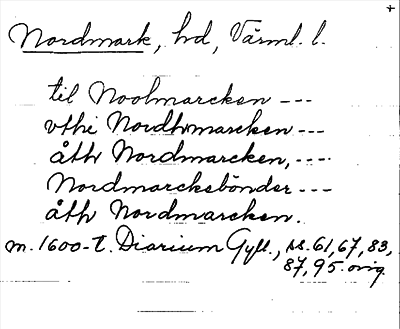 +
Nordmark, hd, Värml. l.
til Noolmarcken ---
vthi Nordhmarcken ---
åth Nordmarcken, ---
Nordmarcksbönder ---
åth Nordmarcken.
m. 1600-t. Diarium Gyll., ss. 61, 67, 83,
87, 95. orig.